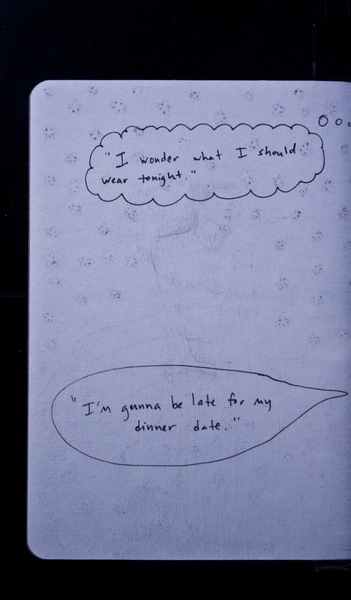 "I wonder what I should
wear tonight."
"I'm gunna be late for my
dinner date."